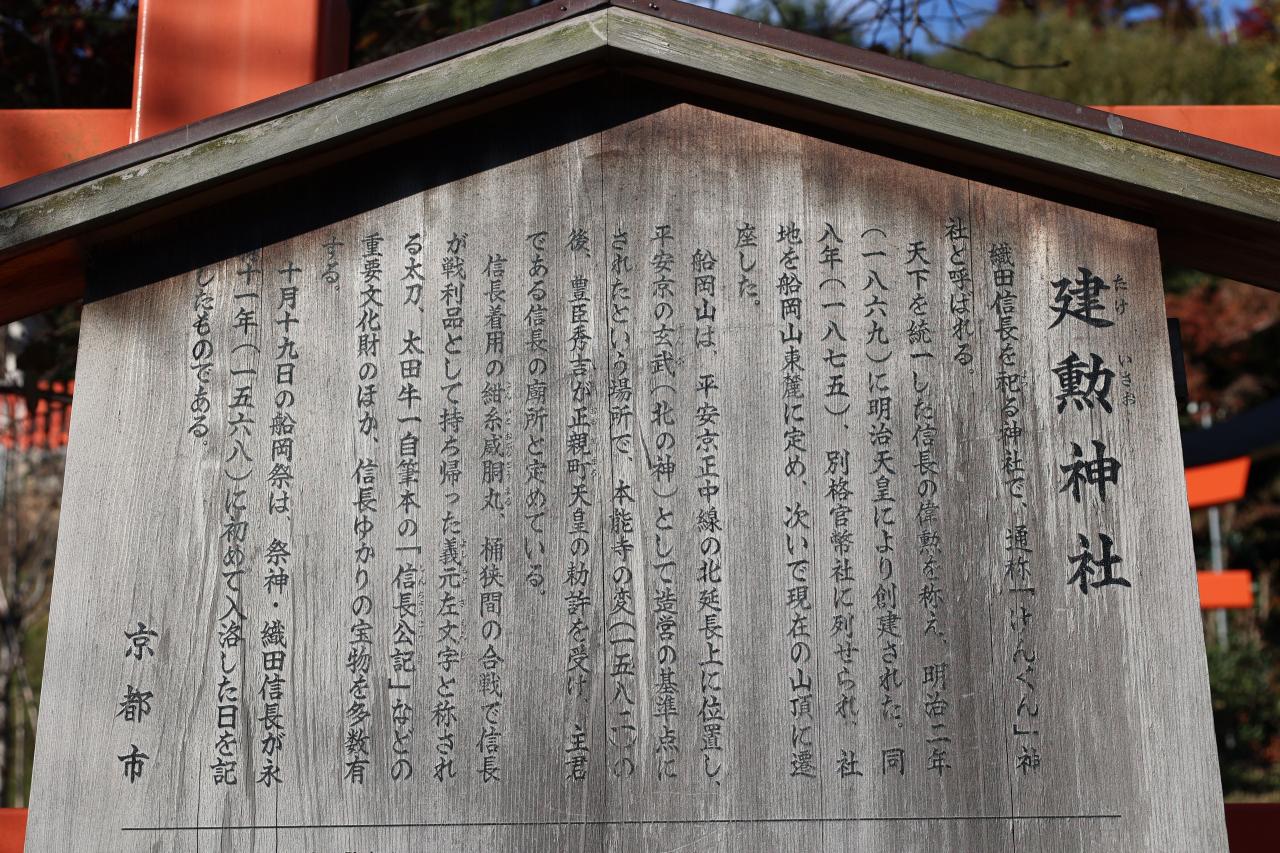 建勲神社
たけ いさお
織田信長を祀る神社で、通称「けんくん」神
社と呼ばれる。
天下を統一した信長の偉勲を称え、明治二年
(一八六九)に明治天皇により創建された。同
八年(一八七五)、別格官幣社に列せられ、社
地を船岡山東麓に定め、次いで現在の山頂に遷
座した。
船岡山は、平安京正中線の北延長上に位置し、
平安京の玄武(北の神)として造営の基準点に
されたという場所で、本能寺の変(一五八二)の
後、豊臣秀吉が正親町天皇の勅許を受け、主君
である信長の廟所と定めている。
信長着用の紺糸威胴丸、桶狭間の合戦で信長
が戦利品として持ち帰った義元左文字と称され
る太刀、太田牛一自筆本の「信長公記」などの
重要文化財のほか、信長ゆかりの宝物を多数有
する。
十月十九日の船岡祭は、祭神・織田信長が永
十一年(一五六八)に初めて入洛した日を記
したものである。
京都市